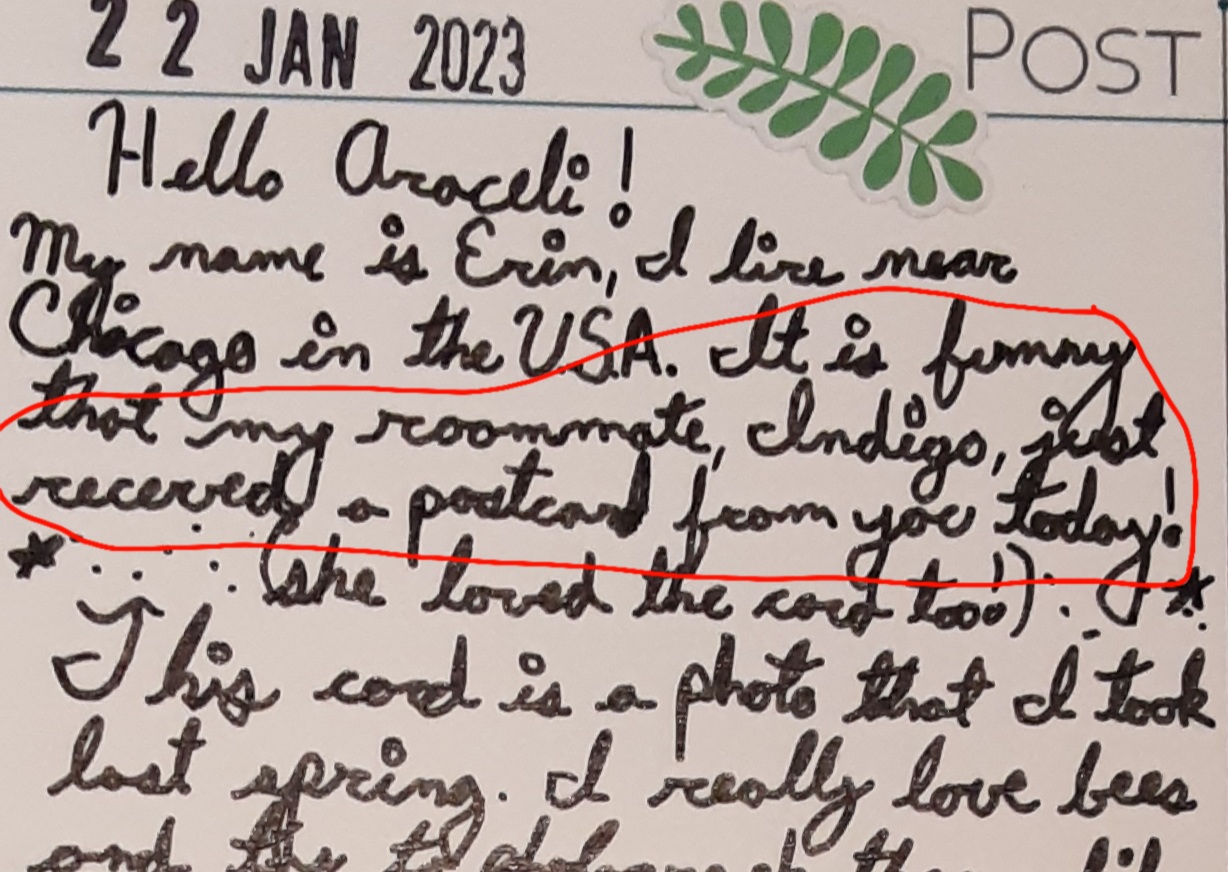 22 JAN 2023
POST
Hello Araceli!
My name is Erin, I live near
Chicago in the USA. It is funny
that my roommate, Indigo, just
received a postcard from you today!
(she loved the card too!)
This card is a photo that I took
last spring. I really love bees
and the